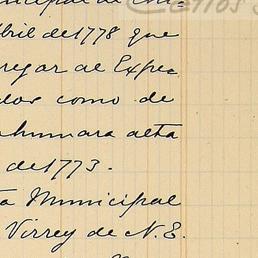 nicipal de Chi-
bril de 1778 que
regar al Expe-
dos como de
ahumara alta
de 1773.-
ta Municipal
Virrey de N. E.